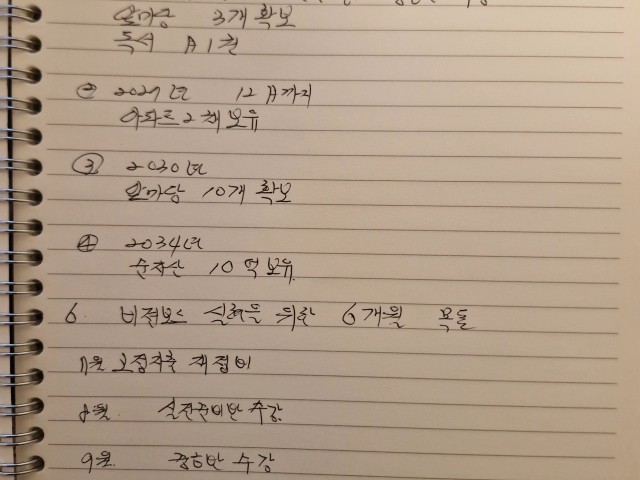 앞마당 3개 확보
독서 A 1권
② 2027년 12月까지
아파트 2채 보유
③ 2030년
앞마당 10개 확보
④ 2034년
순자산 10억 보유
6. 비전보드 실현을 위한 6개월 목표
7월 고정지출 재정비
8월. 실전준비반 수강
9월. 중급반 수강